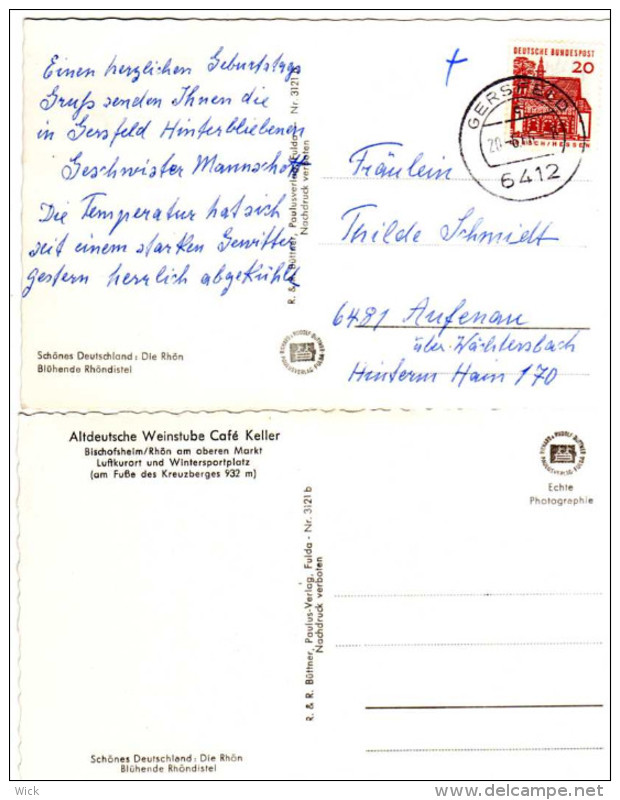 Einen herzlichen Geburtstags
Gruß senden Ihnen die
in Gersfeld Hinterbliebenen
Geschwister Mannschott
Die Temperatur hat sich
seit einem starken Gewitter
gestern herrlich abgekühlt
Schönes Deutschland: Die Rhön
Blühende Rhöndistel
R. & R. Büttner, Paulusverlag, Fulda - Nr. 3121 b
Nachdruck verboten
DEUTSCHE BUNDESPOST
20
LORSCH/HESSEN
GERSFELD
6412
Fräulein
Thilde Schmidt
6481 Aufenau
über Wächtersbach
Hinterm Hain 170
Altdeutsche Weinstube Café Keller
Bischofsheim/Rhön am oberen Markt
Luftkurort und Wintersportplatz
(am Fuße des Kreuzberges 932 m)
Schönes Deutschland: Die Rhön
Blühende Rhöndistel
R. & R. Büttner, Paulus-Verlag, Fulda - Nr. 3121 b
Nachdruck verboten
Echte
Photographie
Wick
www.delcampe.net